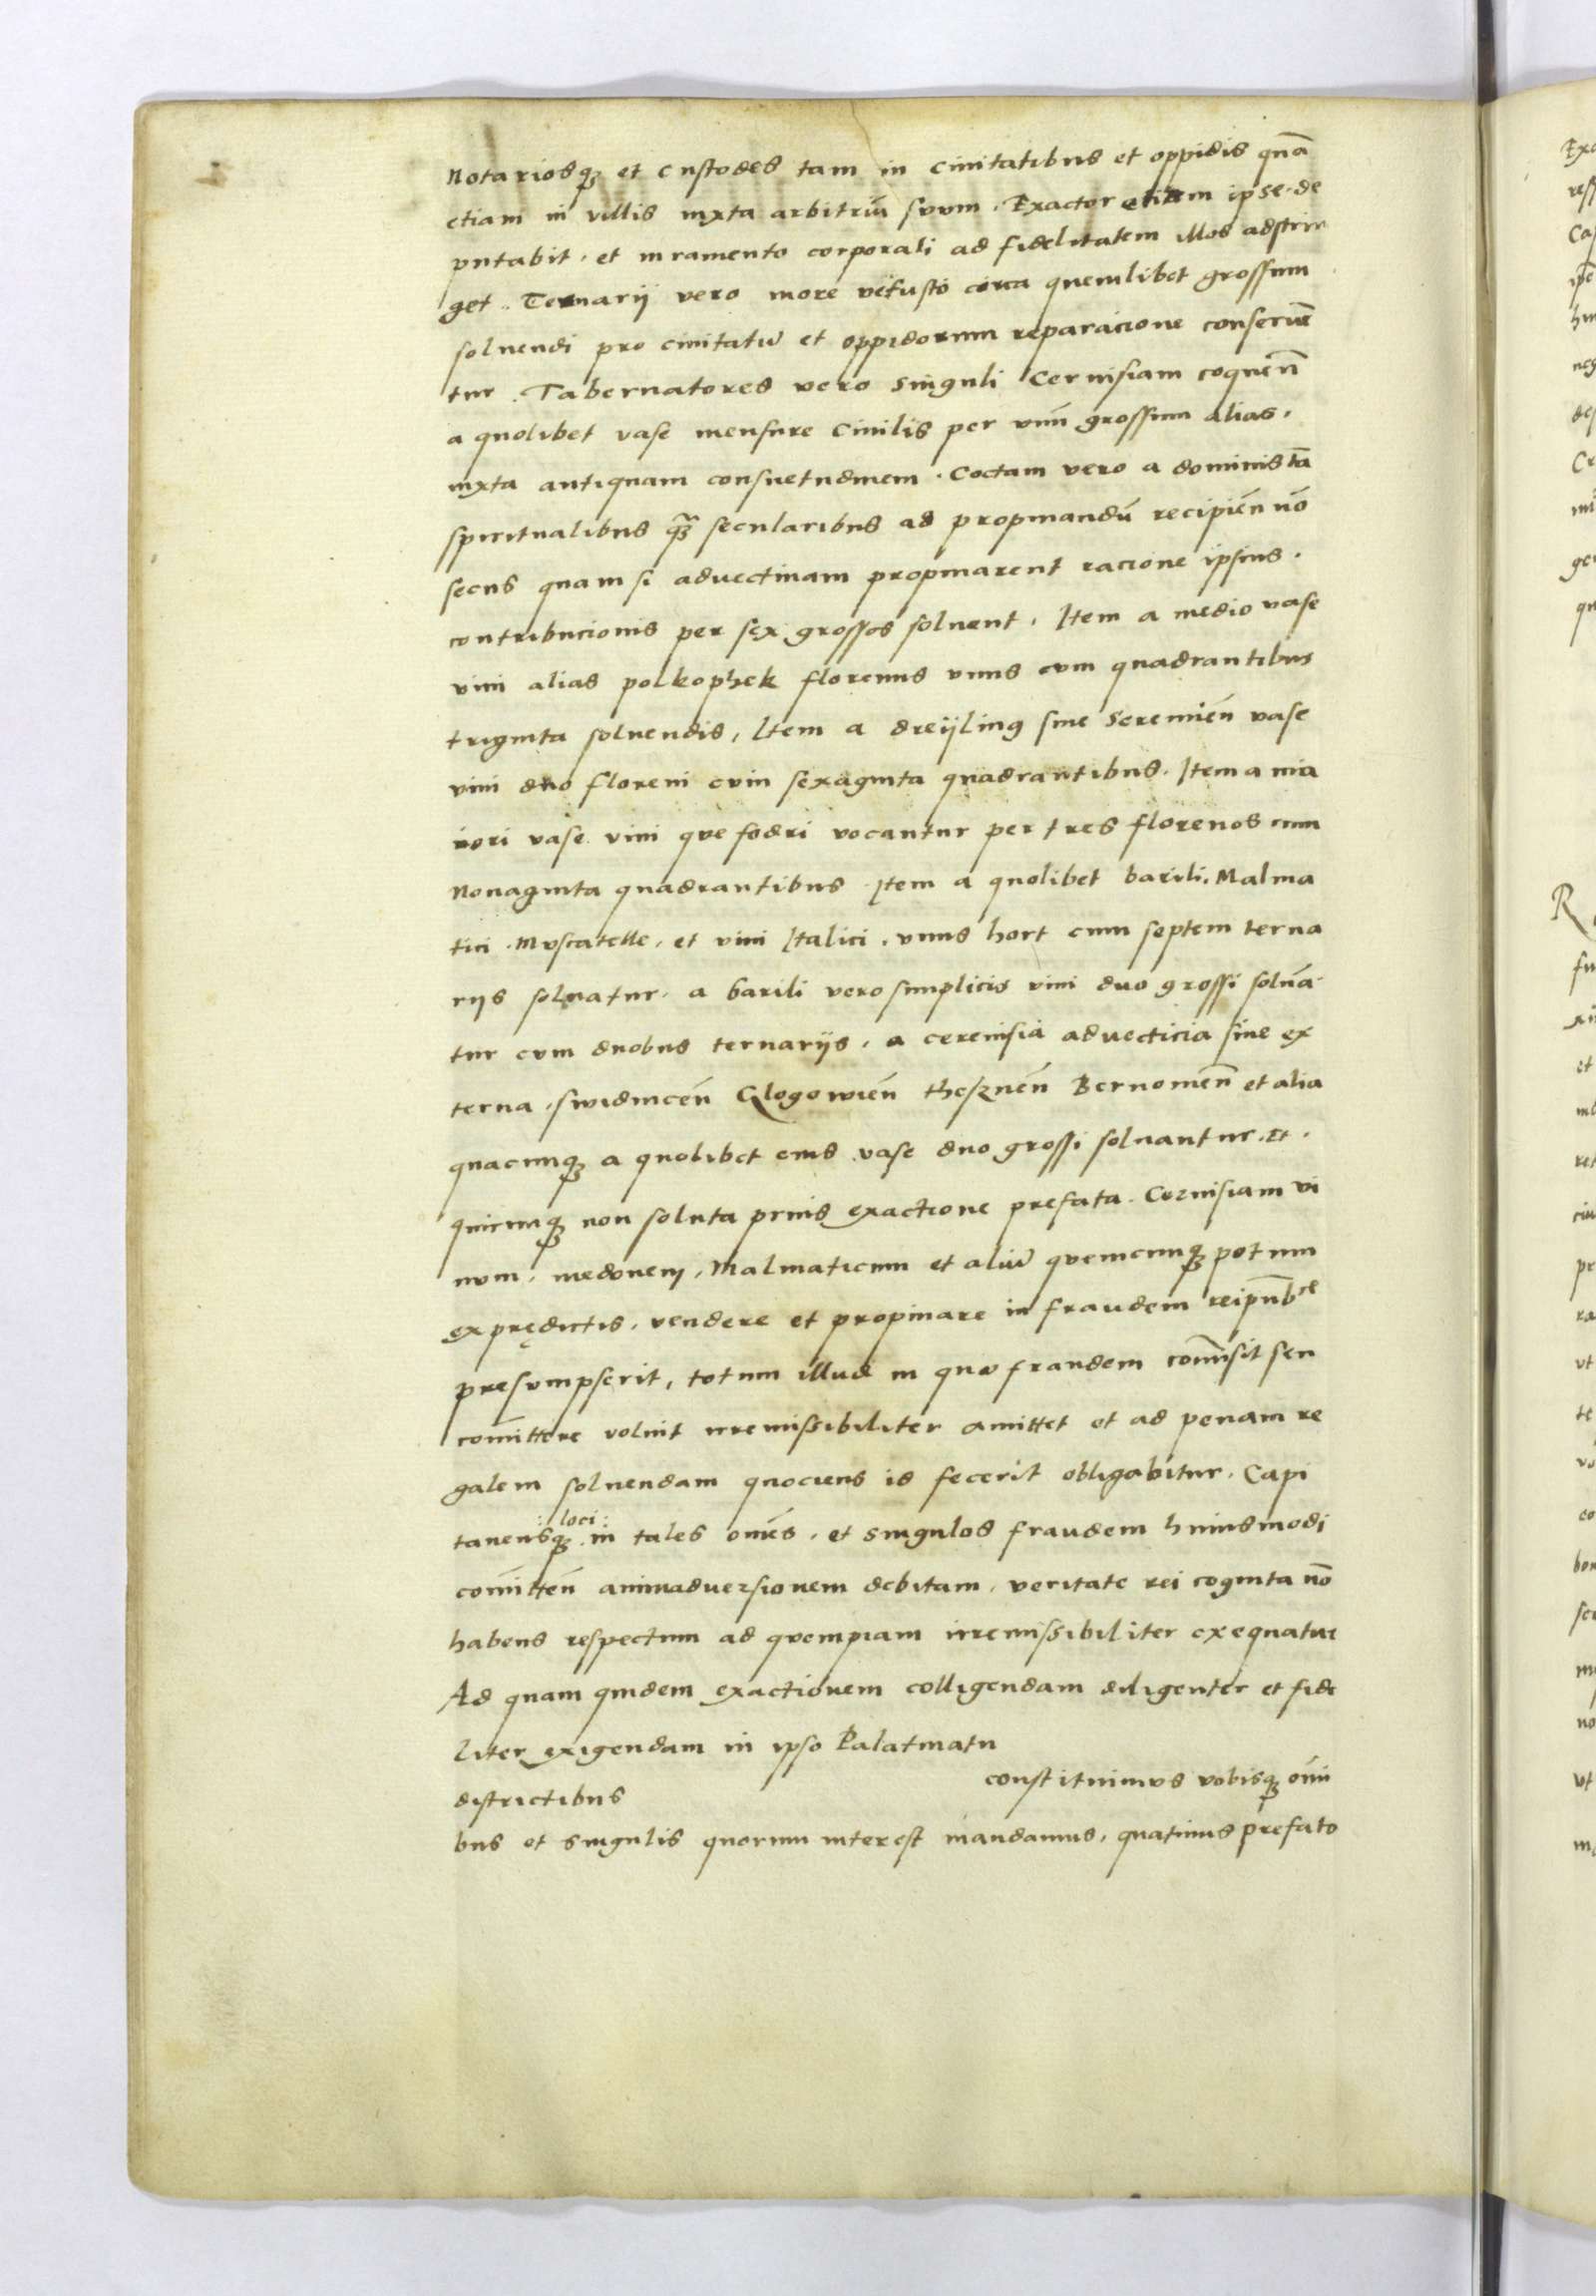 Notariosq₃ et custodes tam in ciuitatibus et oppidis quā
etiam in villis iuxta arbitriū suum . Exactor etiam ipse . de
putabit . et iuramento corporali ad fidelitatem illos adstrin
get . Ternarij vero more vetusto circa quemlibet grossum
soluendi pro ciuitatū et oppidorum reparacione conseruē
tur . Tabernatores vero singuli Ceruisiam coquen̄
a quolibet vase mensure Ciuilis per vnū grossum alias .
iuxta antiquam consuetudinem . Coctam vero a dominis tā
spiritualibus q̄₃ secularibus ad propinandū recipien̄ nō
secus quam si aduectinam propinarent racione ipsius .
contribucionis per sex grossos soluent , Item a medio vase
vini alias polkophek florenus vnus cum quadrantibus
triginta soluendis , Item a dreijling siue Seremien̄ vase
vini duo floreni cum sexaginta quadrantibus . Item a ma
iori vase vini que fodri vocantur per tres florenos cum
Nonaginta quadrantibus Item a quolibet barili . Malma
tici . Muscatelle . et vini Italici . vnus hort cum septem terna
rijs soluatur . a barili vero simplicis vini duo grossi soluā
tur cum duobus ternarijs . a cereuisia aduecticia siue ex
terna . swidnicen̄ Glogowien̄ Thesznen̄ Bernowien̄ et alia
quacunq₃ a quolibet eius vase duo grossi soluantur . Et .
quicunq₃ non soluta prius exactione prefata . Ceruisiam vi
num . medonem , Malmaticum et aliū quemcunq₃ potum
ex prędictis . vendere et propinare in fraudem reipub̄ce
presumpserit , totum illud in quo fraudem com̄isit seu
com̄ittere voluit irremissibiliter amittet et ad penam re
galem soluendam quociens id fecerit obligabitur . Capi
taneusq₃ : loci : in tales om̄es . et singulos fraudem huiusmodi
com̄itten̄ animaduersionem debitam . veritate rei cognita nō
habens respectum ad quempiam irremissibiliter exequatur
Ad quam quidem exactionem colligendam diligenter et fide
liter exigendam in ipso Palatinatu
districtibus constituimus vobisq₃ om̄i
bus et singulis quorum interest mandamus . quatinus prefato